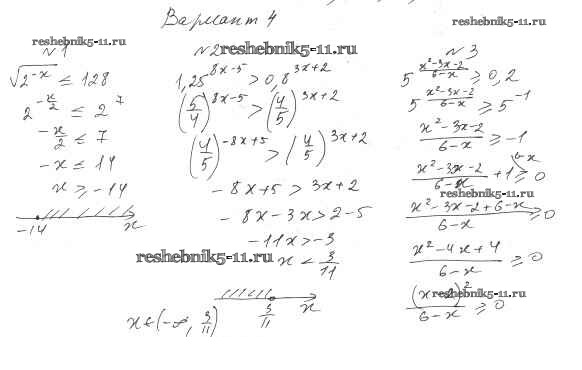 Вариант 4
reshebnik5-11.ru
reshebnik5-11.ru
№1
√2^{-x} ≤ 128
2^{-x/2} ≤ 2^7
-x/2 ≤ 7
-x ≤ 14
x ≥ -14
-14 x
№2 reshebnik5-11.ru
1,25^{8x-5} > 0,8^{3x+2}
(5/4)^{8x-5} > (4/5)^{3x+2}
(4/5)^{-8x+5} > (4/5)^{3x+2}
-8x+5 > 3x+2
-8x-3x > 2-5
-11x > -3
reshebnik5-11.ru
x < 3/11
3/11 x
x ∈ (-∞, 3/11)
№3
5^{(x²-3x-2)/(6-x)} ≥ 0,2
5^{(x²-3x-2)/(6-x)} ≥ 5^{-1}
(x²-3x-2)/(6-x) ≥ -1
(x²-3x-2)/(6-x) + 1^{(6-x} ≥ 0
reshebnik5-11.ru
(x²-3x-2+6-x)/(6-x) ≥ 0
(x²-4x+4)/(6-x) ≥ 0
reshebnik5-11.ru
(x-2)²/(6-x) ≥ 0